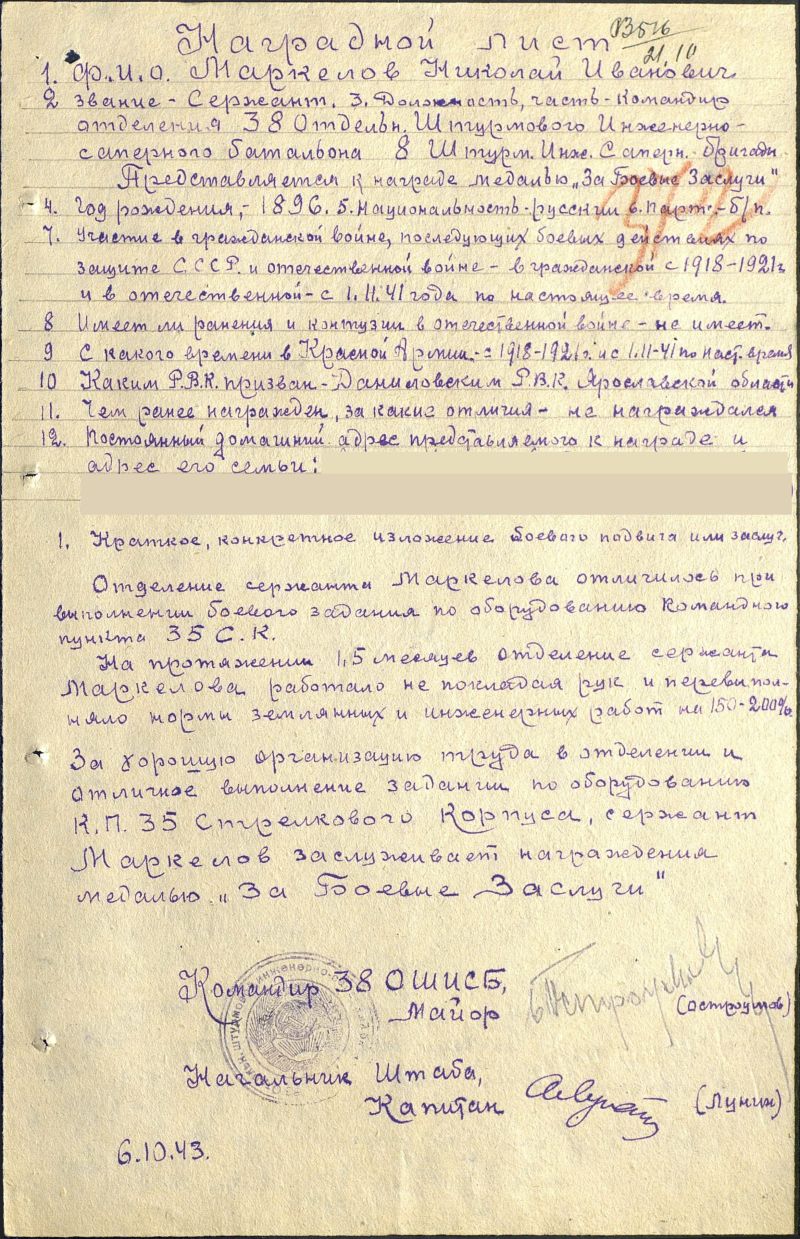 Наградной лист
1. Ф.И.О. Маркелов Николай Иванович
2 звание - Сержант. 3. Должность, часть - Командир
отделения 38 Отдельн. Штурмового Инженерно-
саперного батальона 8 Штурм. Инж. Саперн. бригады
Представляется к награде медалью „За Боевые Заслуги"
4. Год рождения, - 1896. 5. Национальность - русский 6. Парт. - б/п.
7. Участие в гражданской войне, последующих боевых действиях по
защите С.С.С.Р. и отечественной войне - в гражданской с 1918-1921 г
и в отечественной - с 1.11.41 года по настоящее время.
8 Имеет ли ранения и контузии в отечественной войне - не имеет.
9 С какого времени в Красной Армии - с 1918-1921 г. и с 1.11-41 по наст. время
10 Каким Р.В.К. призван - Даниловским Р.В.К. Ярославской области
11. Чем ранее награжден, за какие отличия - не награждался
12. Постоянный домашний адрес представляемого к награде и
адрес его семьи:
1. Краткое, конкретное изложение боевого подвига или заслуг.
Отделение сержанта Маркелова отличилось при
выполнении боевого задания по оборудованию Командного
пункта 35 С.К.
На протяжении 1,5 месяцев отделение сержанта
Маркелова работало не покладая рук и перевыпол-
няло нормы землянных и инженерных работ на 150-200%.
За хорошую организацию труда в отделении и
отличное выполнение задании по оборудованию
К.П. 35 Стрелкового Корпуса, сержант
Маркелов заслуживает награждения
медалью „За Боевые Заслуги"
Командир 38 ОШИСБ,
Майор (Остроумов)
Начальник Штаба,
Капитан (Лунин)
6.10.43.